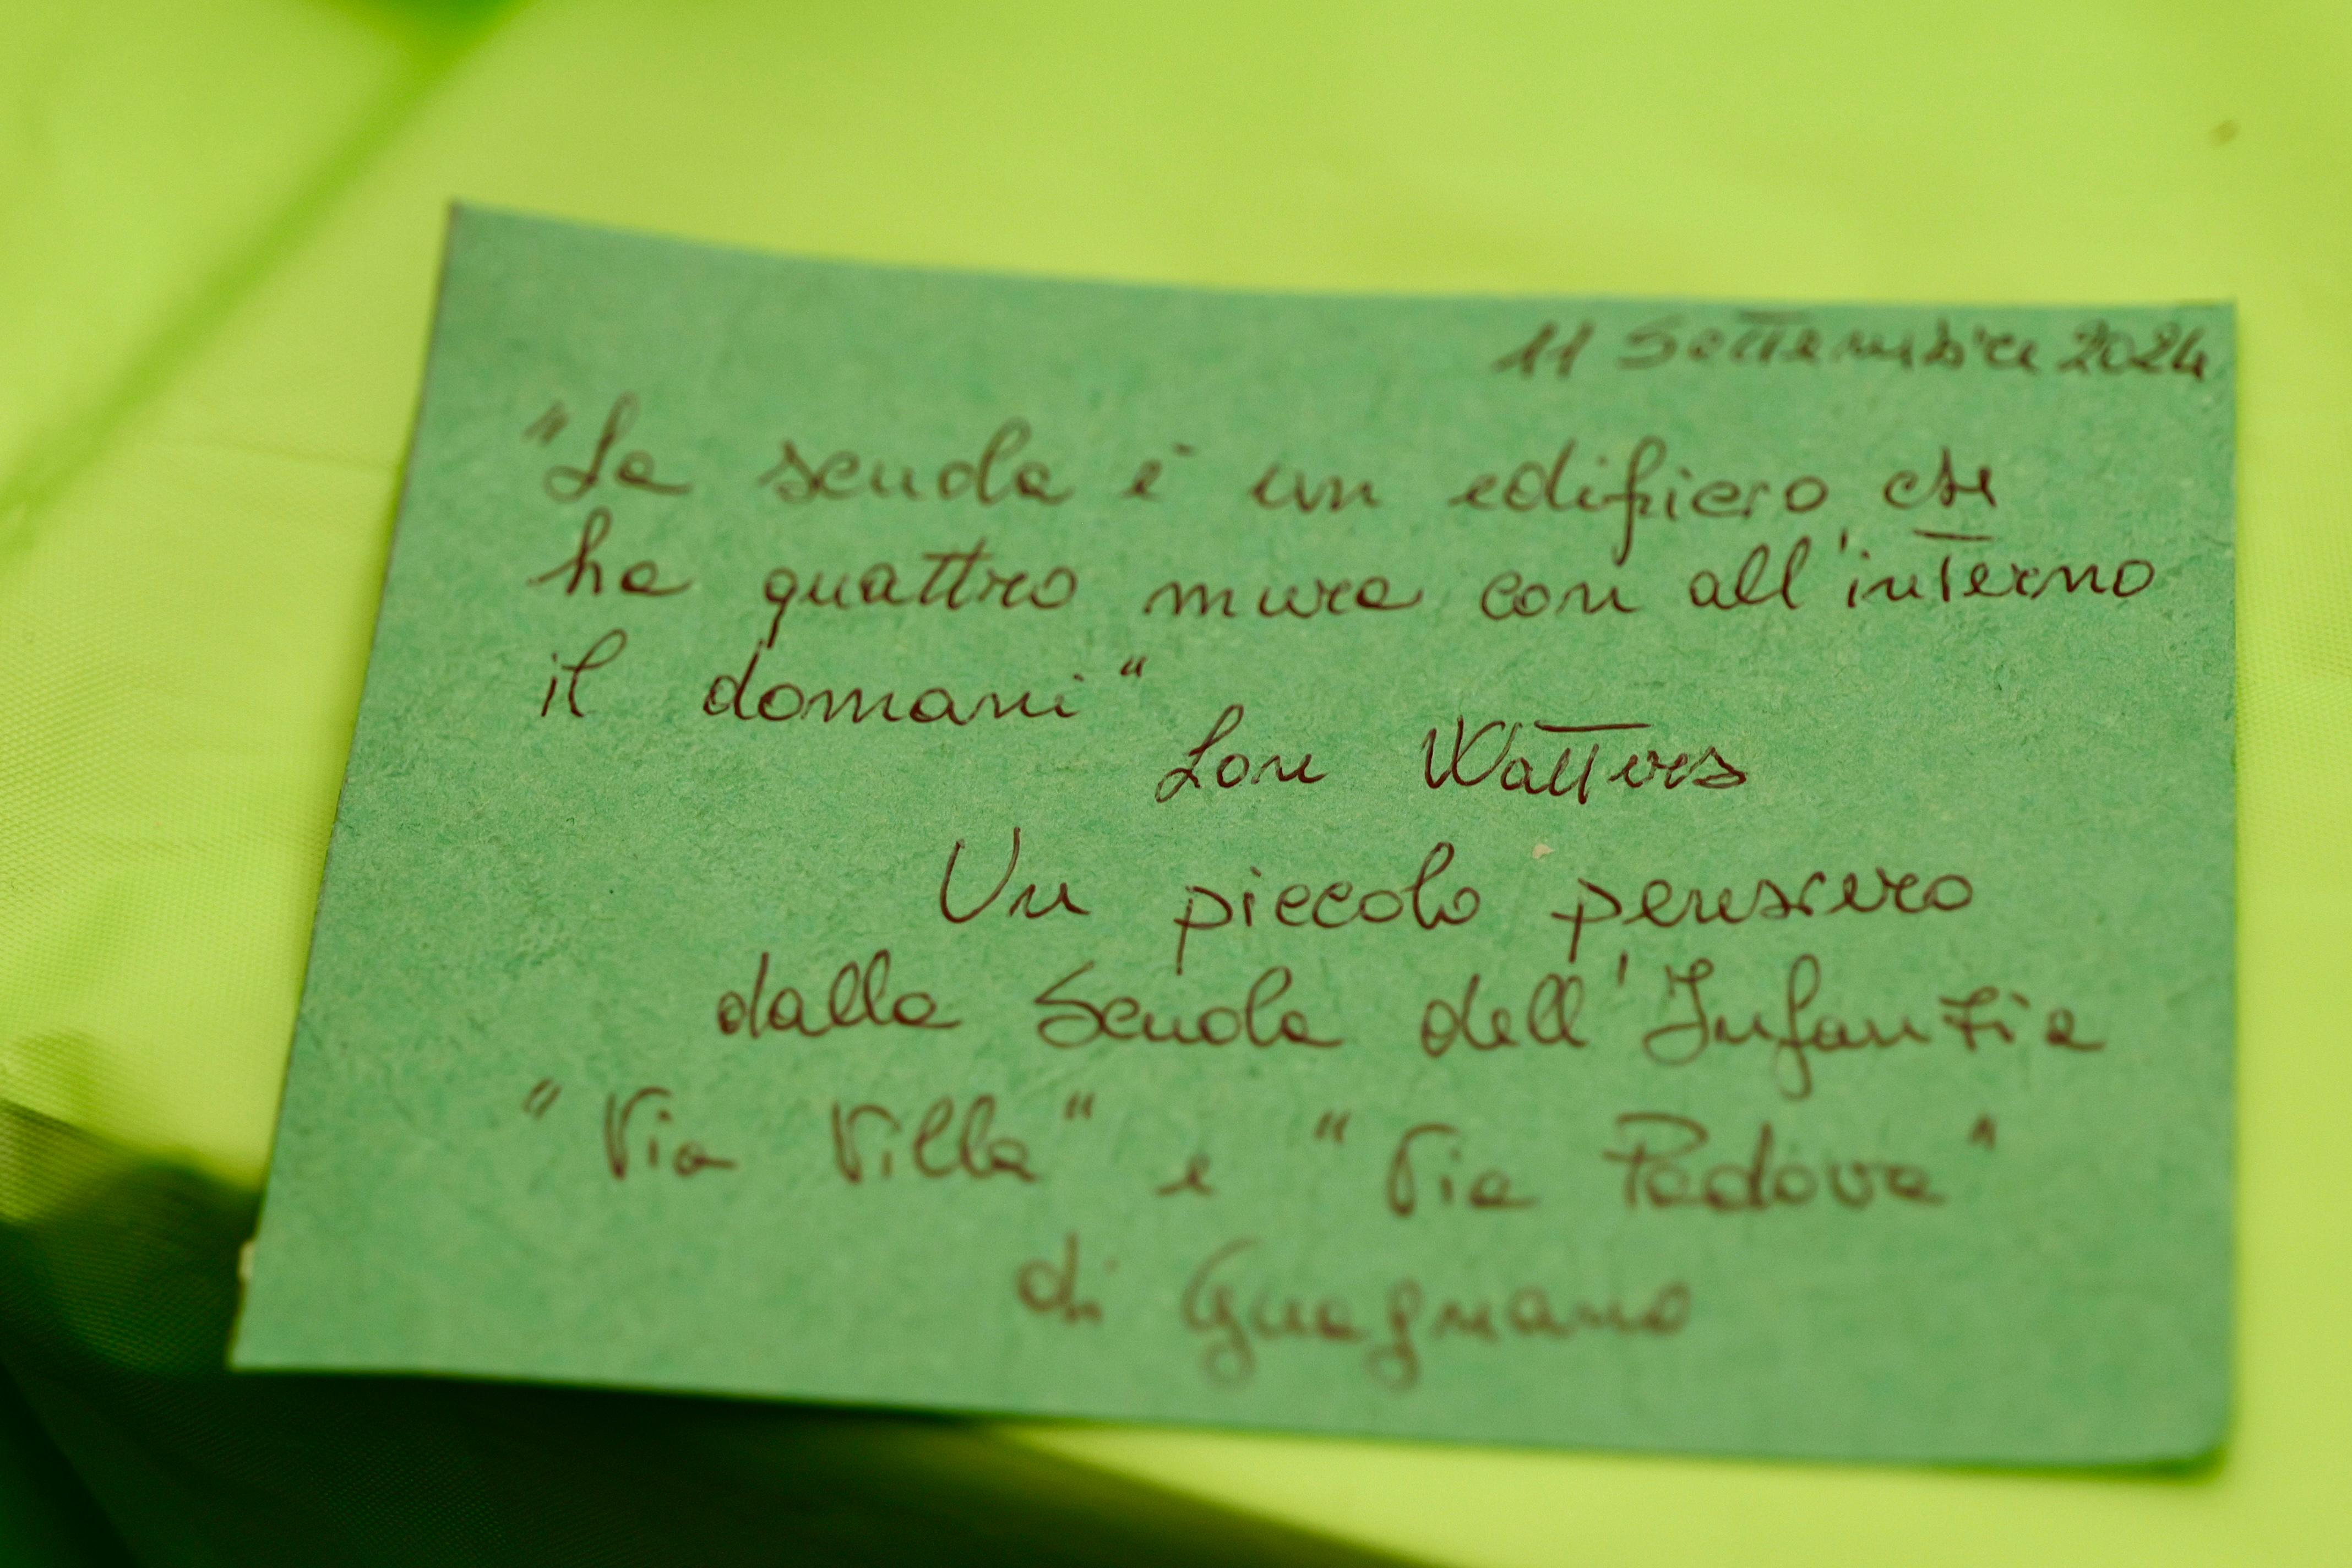 11 Settembre 2024
"La scuola è un edificio che
ha quattro mura con all'interno
il domani"
Lon Watters
Un piccolo pensiero
dalla Scuola dell'Infanzia
"Via Villa" e "Via Padova"
di Guagnano